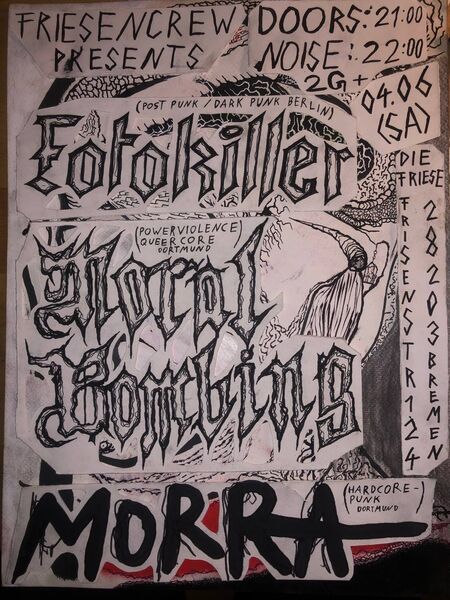 FRIESENCREW
PRESENTS
DOORS: 21:00
NOISE: 22:00
2G+
04.06
(SA)
(POST PUNK / DARK PUNK BERLIN)
Fotokiller
(POWERVIOLENCE)
QUEERCORE
DORTMUND
Moral
Bombing
DIE
FRIESE
FRISENSTR124
28203BREMEN
MORRA
(HARDCORE-)
PUNK
DORTMUND